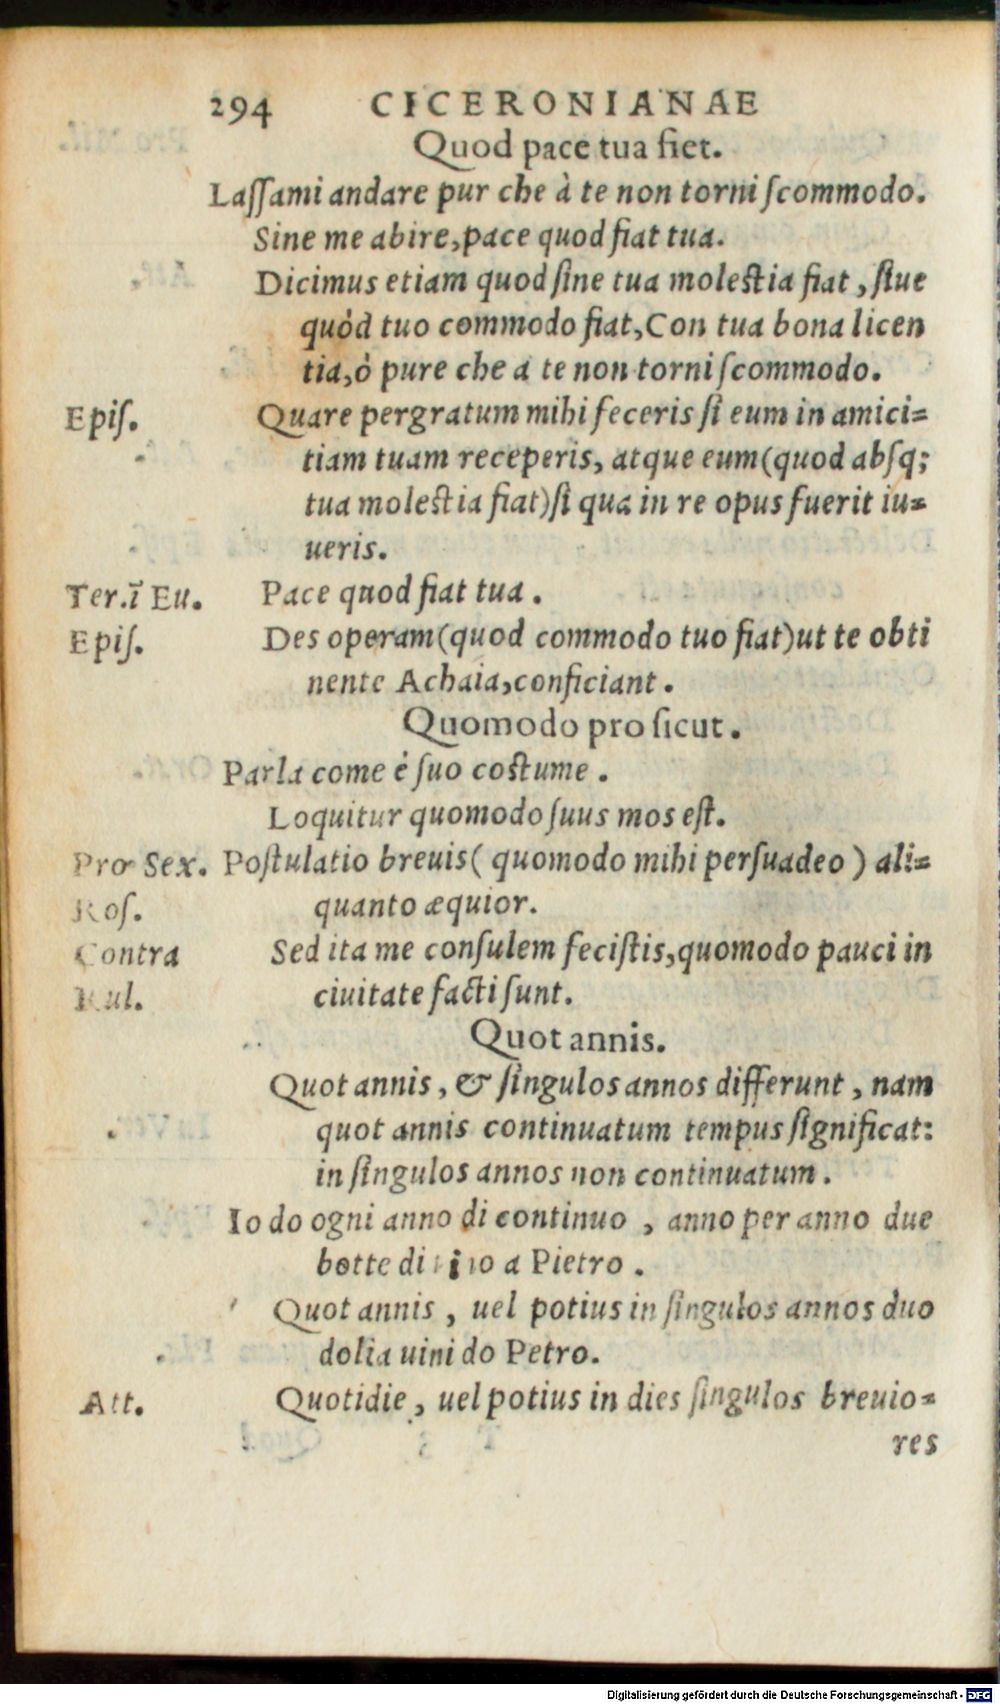 294 CICERONIANAE
Quod pace tua fiet.
Laſſami andare pur che à te non torni ſcommodo.
Sine me abire,pace quod fiat tua.
Dicimus etiam quod ſine tua moleſtia fiat, ſiue
quòd tuo commodo fiat,Con tua bona licen
tia,ò pure che a te non torni ſcommodo.
Epiſ. Quare pergratum mihi feceris ſi eum in amici=
tiam tuam receperis, atque eum(quod abſq;
tua moleſtia fiat)ſi qua in re opus fuerit iu=
ueris.
Ter.ī Eu. Pace quod fiat tua.
Epiſ. Des operam(quod commodo tuo fiat)ut te obti
nente Achaia,conficiant.
Quomodo pro ſicut.
Parla come è ſuo coſtume.
Loquitur quomodo ſuus mos eſt.
Pro Sex. Poſtulatio breuis( quomodo mihi perſuadeo ) ali=
Roſ. quanto æquior.
Contra Sed ita me conſulem feciſtis,quomodo pauci in
Rul. ciuitate facti ſunt.
Quot annis.
Quot annis, & ſingulos annos differunt, nam
quot annis continuatum tempus ſignificat:
in ſingulos annos non continuatum.
Io do ogni anno di continuo, anno per anno due
botte di a Pietro.
Quot annis, uel potius in ſingulos annos duo
dolia uini do Petro.
Att. Quotidie, uel potius in dies ſingulos breuio=
res
Digitalisierung gefördert durch die Deutsche Forschungsgemeinschaft - DFG